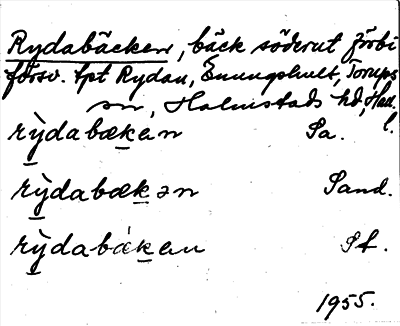 Rydabäcken, bäck söderut förbi
försv. tpt Rydan, Ennungshult, Torups
sn, Halmstads hd, Hall.
rỳdabækan Sa.
rỳdabækən Sand.
rỳdabákan Sf.
1955.